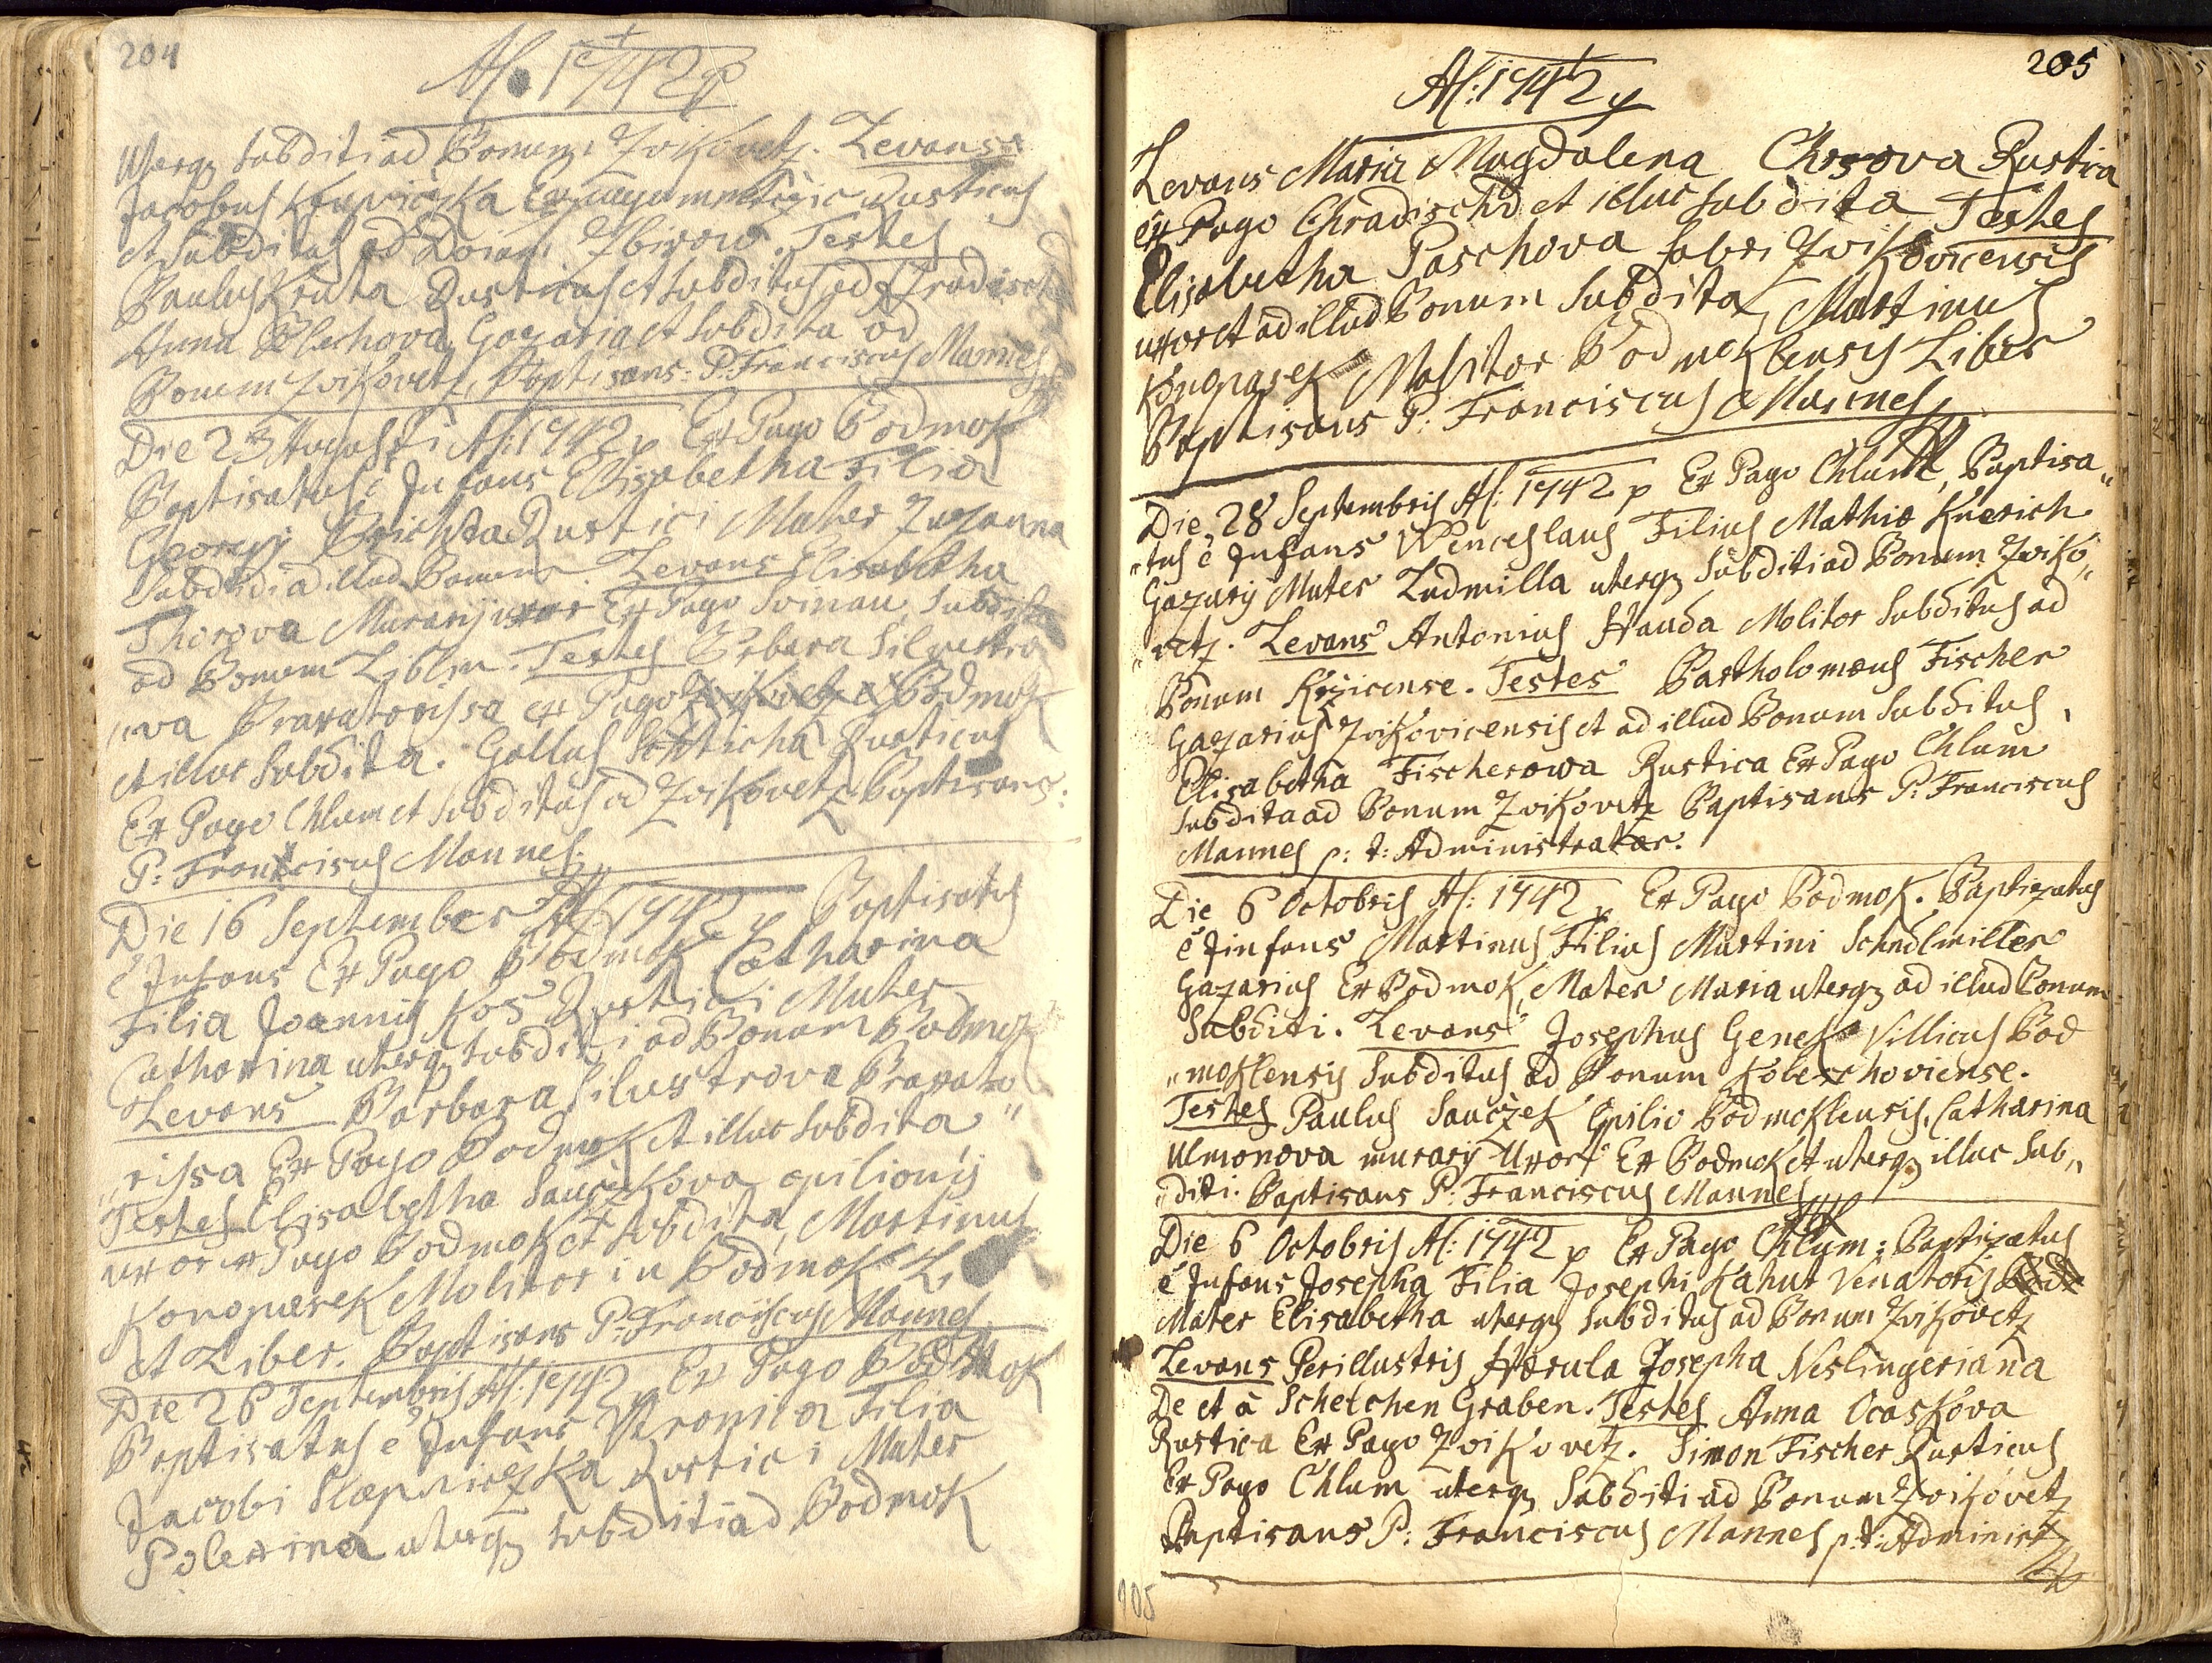 204
A: 1742
Uterq; subditi ad Bonum Zvikovetz. Levans
Jacobus Ex Rusticus
et Subditus ad Zbirow. Testes
Paulus Kruta Rusticus et subditus ad Hradischt
Anna Blechova Gazaria et subdita ad
Bonum Zvikovetz, Baptisans: P: Franciscus Mannes
Die 23 Augusti A: 1742 Ex Pago Podmok
Baptisatus e Infans Elisabetha Filia
Georgij Rustici Mater Zuzanna
Subditi ad illud Bonum. Levans Elisabetha
Thorova Murarij uxor Ex Pago Svinau, Subdita
ad Bonum Liblin. Testes Barbara Silvestro
"va Braxatorissa ex Pago Podmok
et illuc Subdita. Gallus Rusticus
Ex Pago Chlum et Subditus ad Zvikovetz Baptisans:
P: Franciscus Mannes.
Die 16 September A: 1742 Baptisatus
e Infans Ex Pago Podmok Catharina
Filia Joannis Kos Rustici Mater
Catharina uterq; subditi ad Bonum Podmok
Levans Barbara Silvestrova Braxato"
"rissa Ex Pago Podmok et illuc subdita
Testes Elisabetha Sauczkova opilionij
uxor ex Pago Podmok et subdita, Martinus
Konopasek Molitor in Podmok
et Liber. Baptisans P: Franciscus Mannes
Die 26 Septembris A: 1742 Ex Pago Podmok
Baptisatus e Infans Veronica Filia
Jacobi Slapniczka Rustici Mater
Polexina uterq; subditi ad Podmok
205
A: 1742
Levans Maria Magdalena Rustica
ex Pago Chradischt et illuc subdita Testes
Elisabetha Paschova fabri Zvikovicensis
uxor et ad illud Bonum Subdita, Martinus
Konopasek Molitor Podmoklensis Liber
Baptisans P: Franciscus Mannes
Die 28 Septembris A: 1742 Ex Pago Chlum, Baptisa"
"tus e Infans Wenceslaus Filius Mathiæ Knerich
Gazarij Mater Ludmilla uterq; Subditi ad Bonum Zviko"
"vetz. Levans Antonius Hauda Molitor Subditus ad
Bonum Krzicense. Testes Bartholomæus Fischer
Gazarius Zvikovicensis et ad illud Bonum Subditus,
Elisabetha Fischerowa Rustica Ex Pago Chlum
Subdita ad Bonum Zvikovetz Baptisans P: Franciscus
Mannes p: t: Administrator.
Die 6 Octobris A: 1742 Ex Pago Podmok. Baptizatus
e Jinfans Martinus Filius Martini Schedlmiller
Gazarius Ex Podmok, Mater Maria uterq; ad illud Bonum
Subditi. Levans Josephus Genek Villicus Pod
"moklensis Subditus ad Bonum
Testes Paulus Sauczek Opilio Podmoklensis, Catharina
Ulmonova murarij Uxor Ex Podmok et uterq; illuc Sub"
diti. Baptisans P: Franciscus Mannes
Die 6 Octobris A: 1742 Ex Pago Chlum: Baptizatus
e Infans Josepha Filia Josephi Kahut Venatoris
Mater Elisabetha uterq; Subditus ad Bonum Zvikovetz
Levans Perillustris Hærula Josepha Neslingeriana
De et à Schelchen Graben. Testes Anna Ocaskova
Rustica Ex Pago Zvikovetz. Simon Fischer Rusticus
Ex Pago Chlum uterq; Subditi ad Bonum Zvikovetz
Baptisans P: Franciscus Mannes p: t: Administ
105